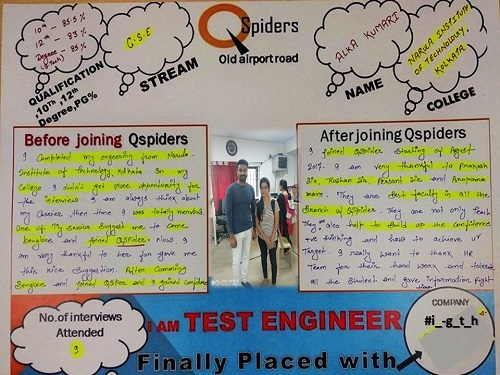 10th - 85.5%
12th - 83%
Degree - 85%
(B.Tech)
QUALIFICATION
,10Th ,12th
Degree,PG%
C.S.E
STREAM
QSpiders
Old airport road
ALKA KUMARI
NAME
NARULA INSTITUTE
OF TECHNOLOGY,
KOLKATA
COLLEGE
Before joining Qspiders
I Completed my engeering from Narula
Institute of Technology, Kolkata. In my
College I didn't get more opportunity for
the interview. I am always think about
my Carrier then time I was totally nervous
One of my Senior Suggest me to come
banglore and joined QSpider. Now I
am very thankful to her for gave me
this nice Suggestion. After Comming
Banglore and joined QSpider and I gained confidence
After joining Qspiders
I joined QSpider Starting of August
2017. I am very thankful to Prakash
Sir, Roshan Sir, and Anupama
mam. They are best faculty in all the
Branch of QSpider. They are not only Teach
They also help to build up the confidence
+ve thinking and how to achieve ur
Target. I really want to thank HR
Team for their hard work and
all the Student and gave Information Right
time!
No.of interviews
Attended
9
I AM TEST ENGINEER
Finally Placed with
COMPANY
#i_-g_t_h